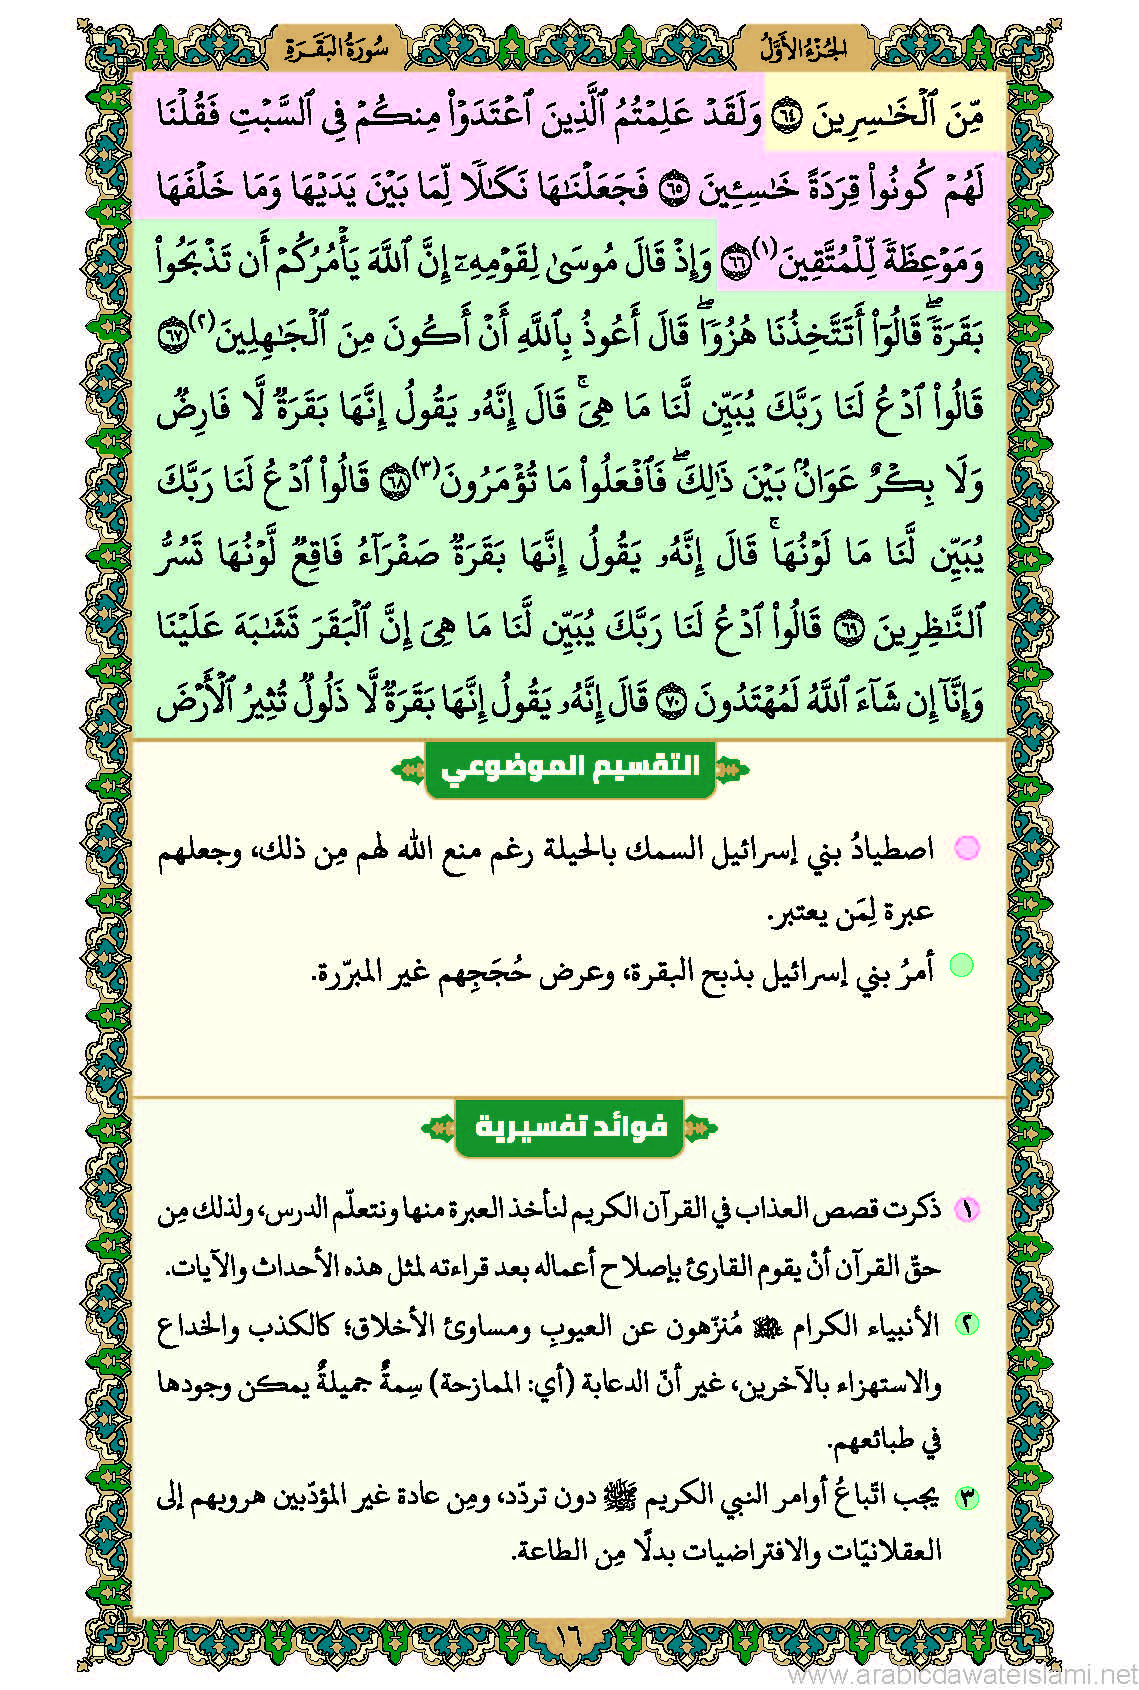 الجُزْءُ الأَوَّلُ
سُورَةُ البَقَرَةِ
مِّنَ ٱلْخَٰسِرِينَ ٦٤ وَلَقَدْ عَلِمْتُمُ ٱلَّذِينَ ٱعْتَدَوْا۟ مِنكُمْ فِى ٱلسَّبْتِ فَقُلْنَا
لَهُمْ كُونُوا۟ قِرَدَةً خَٰسِـِٔينَ ٦٥ فَجَعَلْنَٰهَا نَكَٰلًا لِّمَا بَيْنَ يَدَيْهَا وَمَا خَلْفَهَا
وَمَوْعِظَةً لِّلْمُتَّقِينَ(١) ٦٦ وَإِذْ قَالَ مُوسَىٰ لِقَوْمِهِۦٓ إِنَّ ٱللَّهَ يَأْمُرُكُمْ أَن تَذْبَحُوا۟
بَقَرَةً ۖ قَالُوٓا۟ أَتَتَّخِذُنَا هُزُوًا ۖ قَالَ أَعُوذُ بِٱللَّهِ أَنْ أَكُونَ مِنَ ٱلْجَٰهِلِينَ(٢) ٦٧
قَالُوا۟ ٱدْعُ لَنَا رَبَّكَ يُبَيِّن لَّنَا مَا هِىَ ۚ قَالَ إِنَّهُۥ يَقُولُ إِنَّهَا بَقَرَةٌ لَّا فَارِضٌ
وَلَا بِكْرٌ عَوَانٌۢ بَيْنَ ذَٰلِكَ ۖ فَٱفْعَلُوا۟ مَا تُؤْمَرُونَ(٣) ٦٨ قَالُوا۟ ٱدْعُ لَنَا رَبَّكَ
يُبَيِّن لَّنَا مَا لَوْنُهَا ۚ قَالَ إِنَّهُۥ يَقُولُ إِنَّهَا بَقَرَةٌ صَفْرَآءُ فَاقِعٌ لَّوْنُهَا تَسُرُّ
ٱلنَّٰظِرِينَ ٦٩ قَالُوا۟ ٱدْعُ لَنَا رَبَّكَ يُبَيِّن لَّنَا مَا هِىَ إِنَّ ٱلْبَقَرَ تَشَٰبَهَ عَلَيْنَا
وَإِنَّآ إِن شَآءَ ٱللَّهُ لَمُهْتَدُونَ ٧٠ قَالَ إِنَّهُۥ يَقُولُ إِنَّهَا بَقَرَةٌ لَّا ذَلُولٌ تُثِيرُ ٱلْأَرْضَ
التقسيم الموضوعي
اصطيادُ بني إسرائيل السمك بالحيلة رغم منع الله لهم مِن ذلك، وجعلهم
عبرة لِمَن يعتبر.
أمرُ بني إسرائيل بذبح البقرة، وعرض حُجَجِهم غير المبرّرة.
فوائد تفسيرية
١ ذكرت قصص العذاب في القرآن الكريم لنأخذ العبرة منها ونتعلّم الدرس، ولذلك مِن
حقّ القرآن أنْ يقوم القارئ بإصلاح أعماله بعد قراءته لمثل هذه الأحداث والآيات.
٢ الأنبياء الكرام مُنزّهون عن العيوبِ ومساوئ الأخلاق؛ كالكذب والخداع
والاستهزاء بالآخرين، غير أنّ الدعابة (أي: الممازحة) سِمةٌ جميلةٌ يمكن وجودها
في طبائعهم.
٣ يجب اتّباعُ أوامر النبي الكريم ﷺ دون تردّد، ومِن عادة غير المؤدّبين هروبهم إلى
العقلانيّات والافتراضيات بدلًا مِن الطاعة.
١٦
www.arabicdawateislami.net